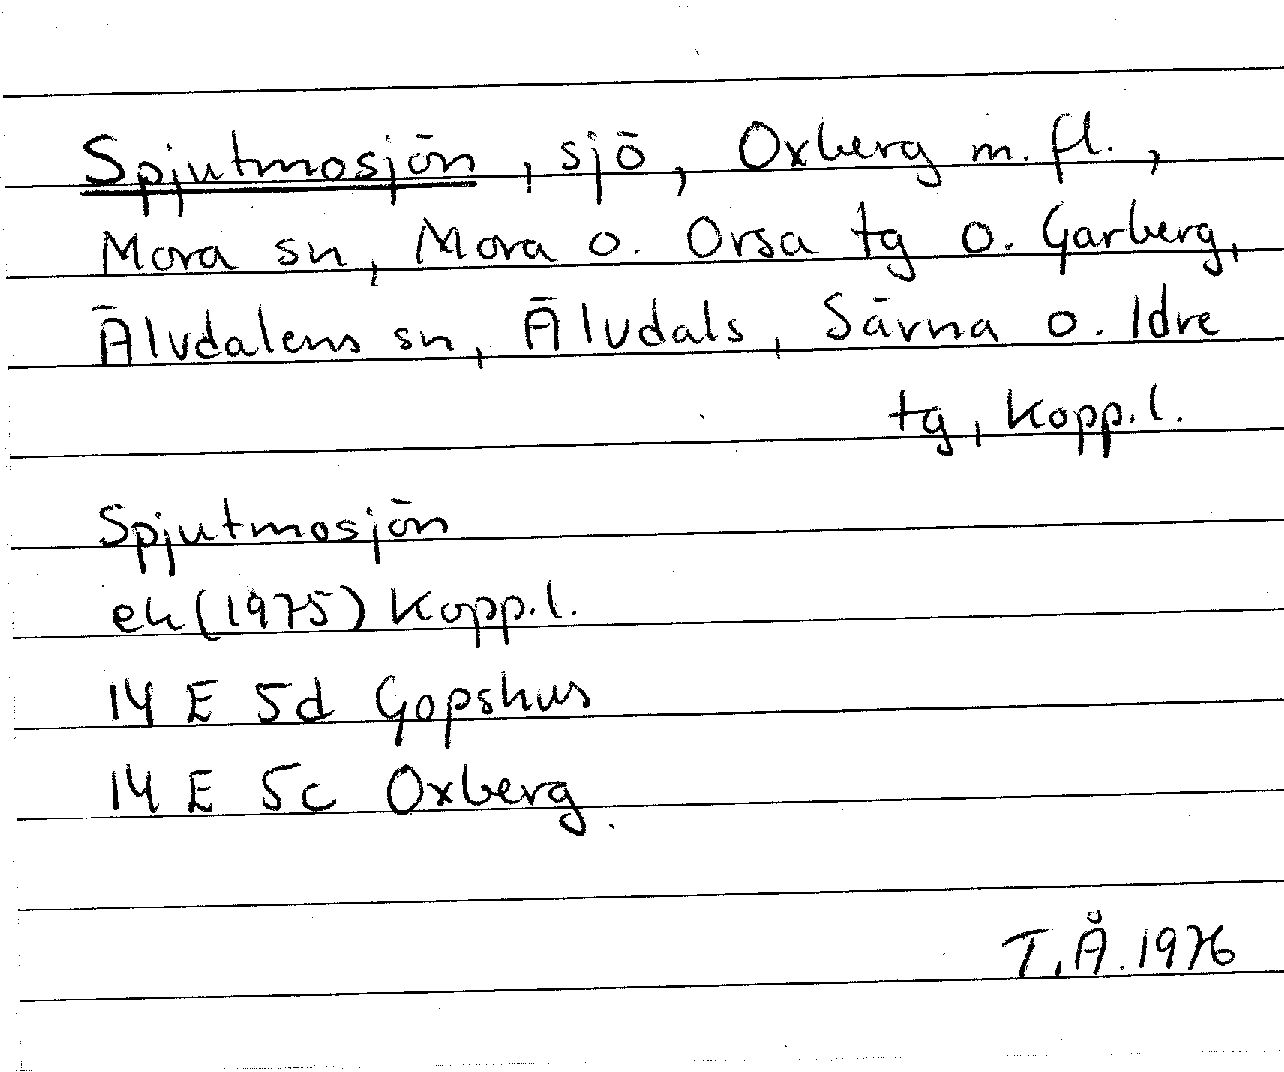 Spjutmosjön, sjö, Oxberg m. fl.,
Mora sn, Mora o. Orsa tg o. Garberg,
Älvdalens sn, Älvdals, Särna o. Idre
tg, Kopp.l.
Spjutmosjön
ek (1975) Kopp.l.
14 E 5d Gopshus
14 E 5c Oxberg
T.Å. 1976